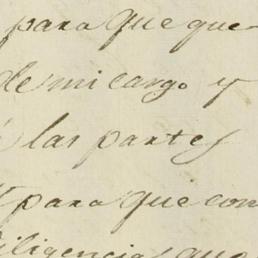 para que que
de mi cargo y
las partes
para que con
diligencias que